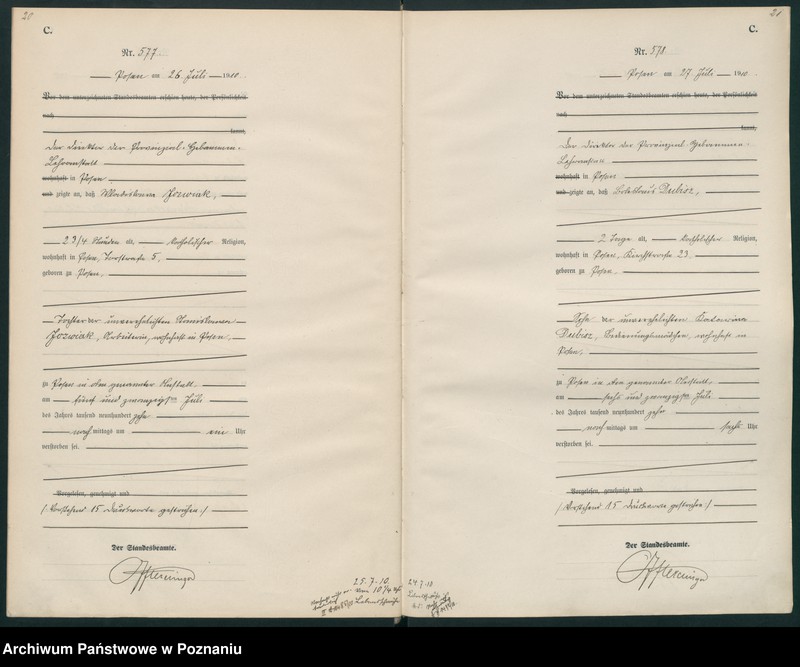 20
C.
Nr. 577
Posen am 26 Juli 1910
Vor dem unterzeichneten Standesbeamten erschien heute, der Persönlichkeit
nach
kannt,
Der Direktor der Provinzial-Hebammen-
Lehranstalt
wohnhaft in Posen
und zeigte an, daß Wladislawa Jozwiak,
2 3/4 Stunden alt, katholischer Religion,
wohnhaft in Posen, Torstraße 5,
geboren zu Posen
Tochter der unverehelichten Stanislawa
Jozwiak, Arbeiterin, wohnhaft in Posen,
zu Posen in oben genannter Anstalt
am fünf und zwanzigsten Juli
des Jahres tausend neunhundert zehn
nachmittags um ein Uhr
verstorben sei.
Vorgelesen, genehmigt und
(Vorstehend 15 Druckworte gestrichen.)
Der Standesbeamte.
25.7.10.
21
C.
Nr. 578
Posen am 27 Juli 1910
Vor dem unterzeichneten Standesbeamten erschien heute, der Persönlichkeit
nach
kannt,
Der Direktor der Provinzial-Hebammen-
Lehranstalt
wohnhaft in Posen
und zeigte an, daß Boleslaus Dubisz,
2 Tage alt, katholischer Religion,
wohnhaft in Posen, 23
geboren zu Posen
Sohn der unverehelichten
Dubisz, wohnhaft in
Posen,
zu Posen in der genannten Anstalt
am sechs und zwanzigsten Juli
des Jahres tausend neunhundert zehn
nachmittags um sechs Uhr
verstorben sei.
Vorgelesen, genehmigt und
(Vorstehend 15 Druckworte gestrichen.)
Der Standesbeamte.
24.7.10
Archiwum Państwowe w Poznaniu